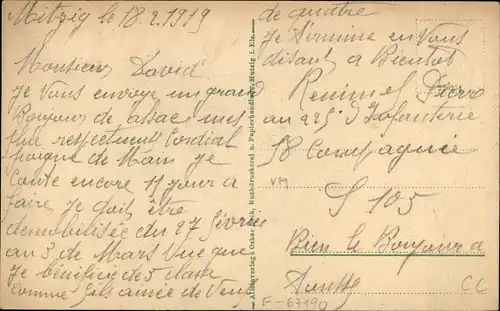 Mutzig le 18.2.1919
Monsieur David
Je Vous envoye un grand
Bonjour de alsac mes
plus respectueuse Cordial
poigné de Main Je
Conte encore 11 jour a
faire Je doit être
demobilisée du 27 fivrier
au 3 de Mars Vue que
Je benificie de 5 classe
Comme fils ainée de Veuf
de quatre
Je Termine en Vous
disant a Bientot
Remimel Pierre
au 225. d'Infanterie
18 Compagnie
VM
S 105
Bien le Bonjour a
CC
F-67190
Buchdruckerei u. Papierhandlung, Mutzig i. Els.